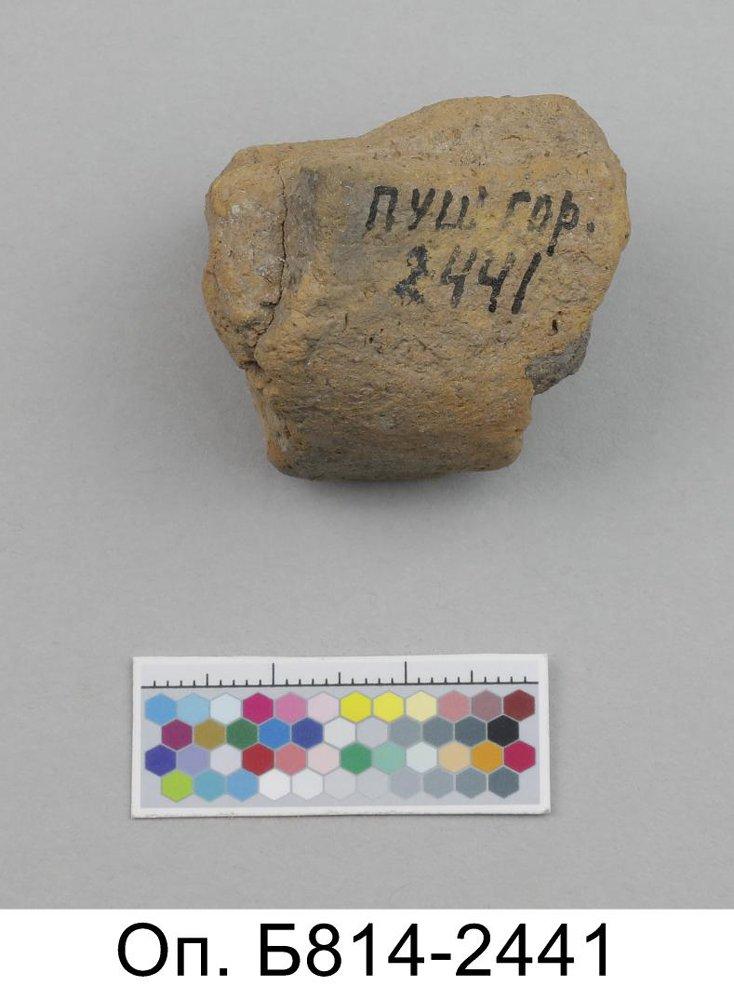 ПУШ ГОР.
2441
Оп. Б814-2441